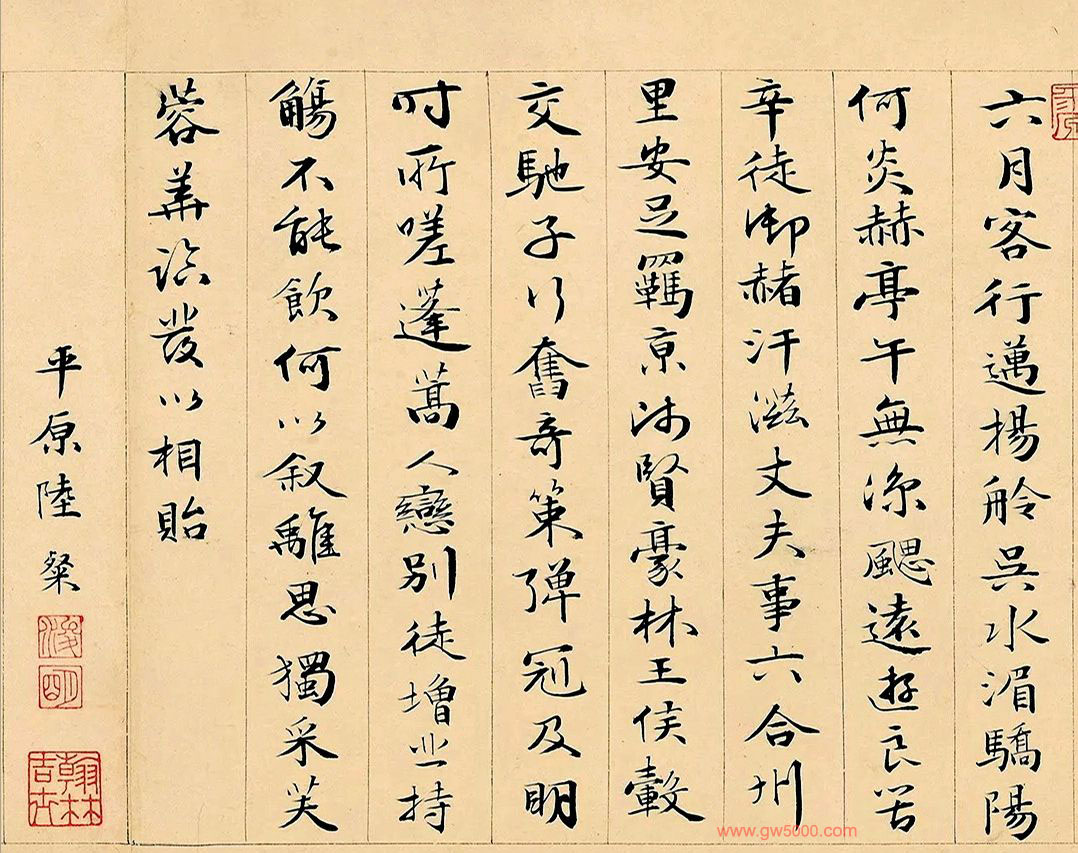 六月客行邁揚舲吳水湄驕陽
何炎赫亭午無涼颸遠遊良苦
辛徒御赭汗滋丈夫事六合州
里安足羈京師賢豪林王侯轂
交馳子行奮奇策彈冠及明
时所嗟蓬蒿人戀別徒增悲持
觴不能飲何以叙離思獨采芙
蓉華臨發以相貽
平原陸粲
浚明
翰林吉士
www.gw5000.com